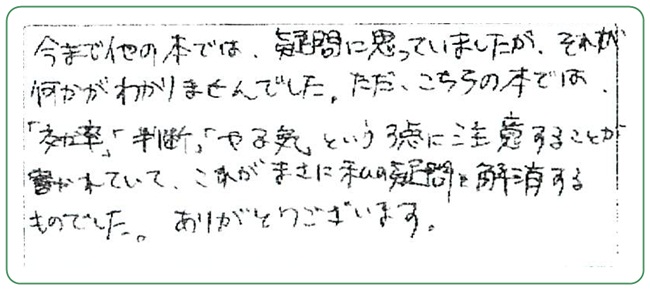 今まで他の本では、疑問に思っていましたが、それが
何かがわかりませんでした。ただ、こちらの本では、
「効率」「判断」「やる気」という点に注意することが
書かれていて、これがまさに私の疑問を解消する
ものでした。ありがとうございます。